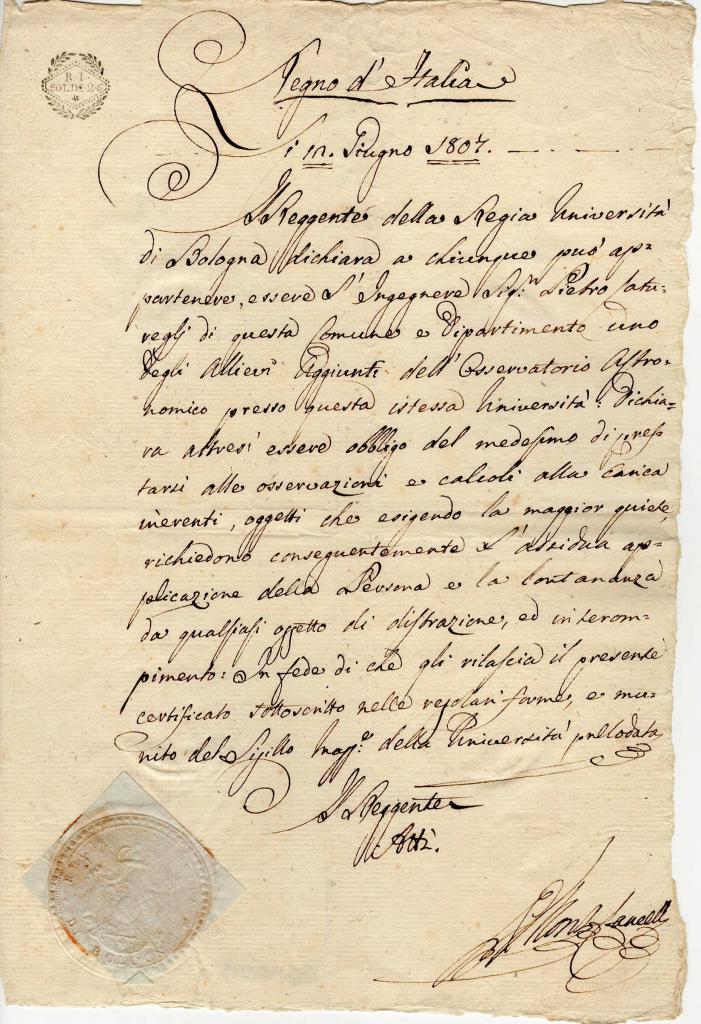 R. I.
SOLDI 26
Regno d'Italia
Li 12. Giugno 1807.
Il Reggente della Regia Università
di Bologna dichiara a chiunque può ap=
partenere, essere l'Ingegnere Sig.r Pietro Catu=
regli di questa Comune e Dipartimento uno
degli Allievi Aggiunti dell'Osservatorio Astro=
nomico presso questa istessa Università: Dichia=
ra altresì essere obbligo del medesimo di pres=
tarsi alle osservazioni e calcoli alla Carica
inerenti, oggetti che esigendo la maggior quiete,
richiedono conseguentemente l'assidua ap=
plicazione della Persona e la lontananza
da qualsiasi oggetto di distrazione, ed interom=
pimento: In fede di che gli rilascia il presente
certificato sottoscritto nelle regolari forme, e mu=
nito del Sigillo Magg.e della Università prelodata
Il Reggente
Atti.
BOLOGNA